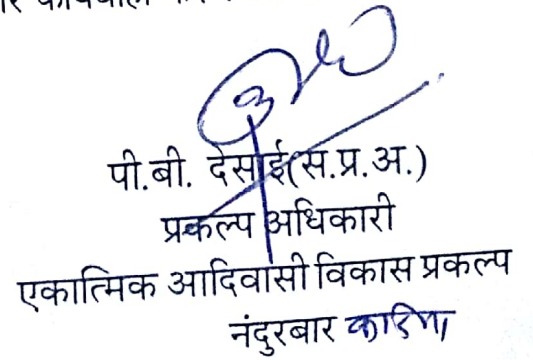 पी.बी. देसाई(स.प्र.अ.)
प्रकल्प अधिकारी
एकात्मिक आदिवासी विकास प्रकल्प
नंदुरबार